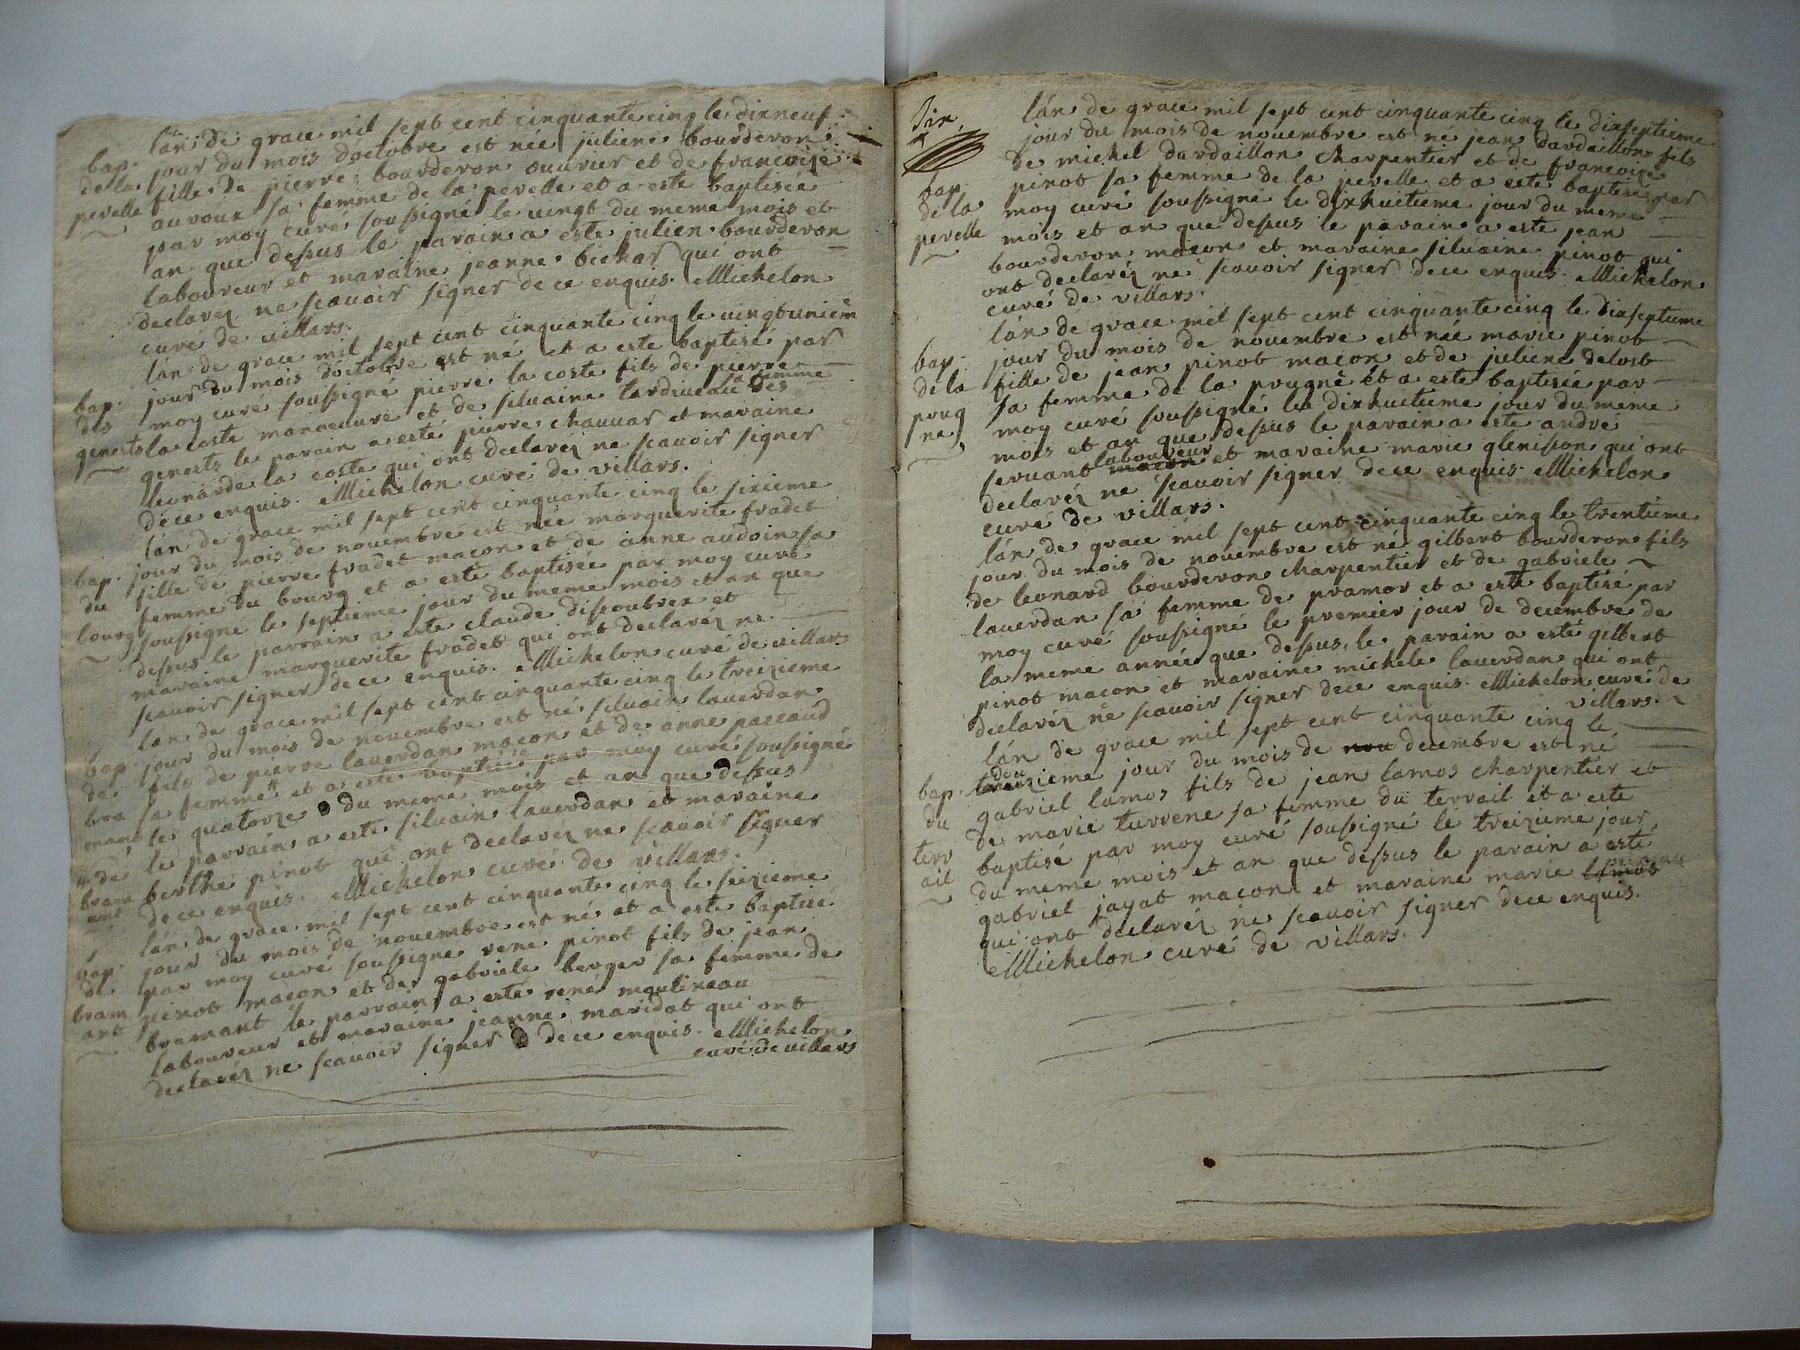 lán de grace mil sept cent cinquante cinq le dixneuf
bap. jour du mois doctobre est née juliene bourderon
de la fille de pierre bourderon ouvrier et de francoise
pevelle auroux sa femme de la pevelle et a esté baptisée
par moy curé soussigné le vingt du meme mois et
an que dessus le parain a esté julien bourderon
laboureur et maraine jeanne bichar qui ont
declaréz ne scavoir signer de ce enquis. Michelon
curé de villars.
lán de grace mil sept cent cinquante cinq le vingtuniém
jour du mois doctobre est né et a esté baptisé par
bap. moy curé soussigné pierre la coste fils de pierre
des la coste manoeuvre et de silvaine tardiveau sa femme des
genests genests le parain a esté pierre chauvar et maraine
leonarde la coste qui ont declaréz ne scavoir signer
de ce enquis. Michelon curé de villars.
lán de grace mil sept cent cinquante cinq le sixieme
jour du mois de novembre est née marguerite fradet
bap. fille de pierre fradet macon et de anne audoin sa
du femme du bourg et a esté baptisée par moy curé
bourg soussigné le septieme jour du meme mois et an que
dessus le parrain a esté claude dissoubrex et
maraine marguerite fradet qui ont declaréz ne
scavoir signer de ce enquis. Michelon curé de villars
lan de grace mil sept cent cinquante cinq le treizieme
jour du mois de novembre est né silvain laverdan
bap. fils de pierre laverdan macon et de anne passaud
de sa femme et a esté baptisé par moy curé soussigné
bra le quatorze du meme mois et an que dessus
mant le parrain a esté silvain laverdan et maraine
# de berthe pinot qui ont declaréz ne scavoir signer
bram de ce enquis. Michelon curé de villars.
ant
lán de grace mil sept cent cinquante cinq le seizieme
jour du mois de novembre est né et a esté baptisé
bap. par moy curé soussigné rene pinot fils de jean
de pinot macon et de gabriele berger sa femme de
bram bramant le parrain a esté rené moulineau
ant laboureur et maraine jeanne maridat qui ont
declaréz ne scavoir signer de ce enquis. Michelon
curé de villars
lán de grace mil sept cent cinquante cinq le dixseptieme
jour du mois de novembre est né jean dardaillon fils
de michel dardaillon charpentier et de francoise
bap. pinot sa femme de la pevelle et a esté baptisé par
de la moy curé soussigné le dixhuitieme jour du meme
pevelle mois et an que dessus le parain a esté jean
bourderon macon et maraine silvaine pinot qui
ont declaréz ne scavoir signer de ce enquis. Michelon
curé de villars.
lán de grace mil sept cent cinquante cinq le dixseptieme
jour du mois de novembre est née marie pinot
bap. fille de jean pinot macon et de juliene delost
de la sa femme de la prugne et a esté baptisée par
proug moy curé soussigné le dixhuitieme jour du meme
ne mois et an que dessus le parain a esté andré
servant macon laboureur et maraine marie glenisson qui ont
declaréz ne scavoir signer de ce enquis. Michelon
curé de villars.
lán de grace mil sept cent cinquante cinq le trentieme
jour du mois de novembre est né gilbert bourderon fils
de leonard bourderon charpentier et de gabriele
laverdan sa femme de pramor et a esté baptisé par
moy curé soussigné le premier jour de decembre de
la meme année que dessus, le parain a esté gilbert
pinot macon et maraine michele laverdan qui ont
declaréz ne scavoir signer de ce enquis. Michelon curé de
villars.
lán de grace mil sept cent cinquante cinq le
douzieme jour du mois de nov decembre est né
bap. gabriel lamos fils de jean lamos charpentier et
du de marie turrene sa femme du terrail et a esté
terr baptisé par moy curé soussigné le treizieme jour
ail du meme mois et an que dessus le parain a esté
gabriel jayat macon et maraine marie lamos
qui ont declaréz ne scavoir signer de ce enquis.
Michelon curé de villars.